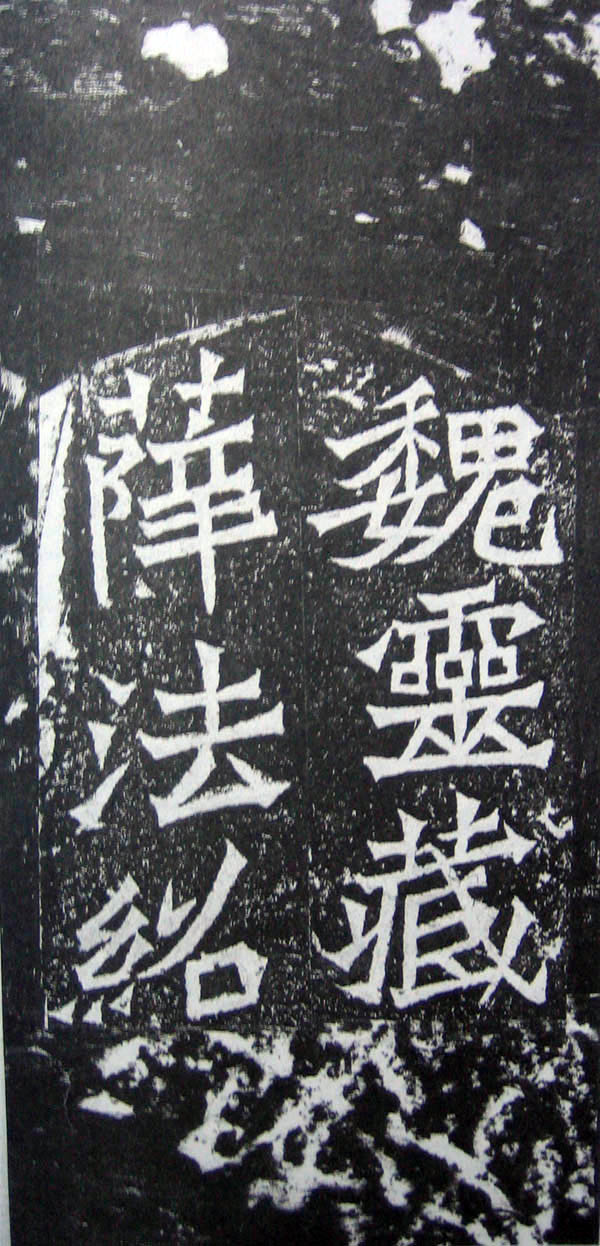 魏靈藏
薛法紹